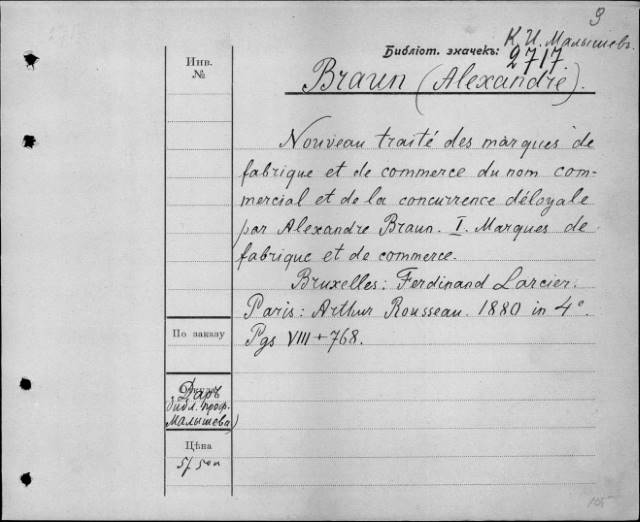 9
К. И. Малышевъ
Библіот. значекъ: 2717
Инв.
№
Braun (Alexandre).
Nouveau traité des marques de
fabrique et de commerce du nom com-
mercial et de la concurrence déloyale
par Alexandre Braun. I. Marques de
fabrique et de commerce.
Bruxelles: Ferdinand Larcier.
Paris: Arthur Rousseau. 1880 in 4°.
Pgs VIII + 768.
По заказу
Откуда
Даръ
библ. проф.
Малышева)
Цѣна